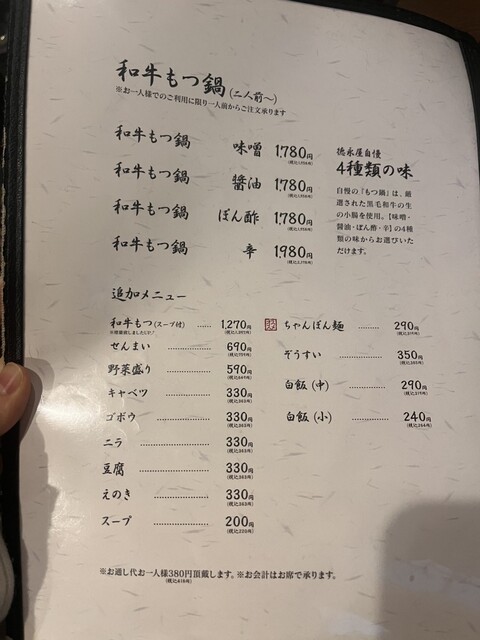 和牛もつ鍋(二人前〜)
※お一人様でのご利用に限り一人前からご注文承ります
和牛もつ鍋 味噌 1,780円
(税込1,958円)
和牛もつ鍋 醬油 1,780円
(税込1,958円)
和牛もつ鍋 ぽん酢 1,780円
(税込1,958円)
和牛もつ鍋 辛 1,980円
徳永屋自慢
4種類の味
自慢の『もつ鍋』は、厳
選された黒毛和牛の生
の小腸を使用。【味噌・
醤油・ぽん酢・辛】の4種
類の味からお選びいた
だけます。
追加メニュー
和牛もつ(スープ付) …… 1,270円
せんまい …… 690円
(税込759円)
野菜盛り …… 590円
(税込649円)
キャベツ …… 330円
(税込363円)
ゴボウ …… 330円
(税込363円)
ニラ …… 330円
(税込363円)
豆腐 …… 330円
(税込363円)
えのき …… 330円
(税込363円)
スープ …… 200円
(税込220円)
ちゃんぽん麺 …… 290円
(税込319円)
ぞうすい …… 350円
(税込385円)
白飯(中) …… 290円
(税込319円)
白飯(小) …… 240円
(税込264円)
※お通し代お一人様380円頂戴します。※お会計はお席で承ります。
(税込418円)